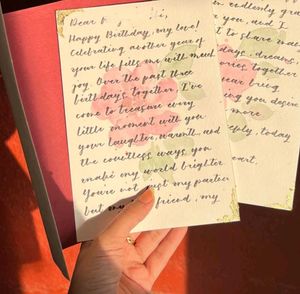 Dear
Happy Birthday, my love!
Celebrating another year of
your life fills me with much
joy. Over the past three
birthdays together, I've
come to treasure every
little moment with you
your laughter, warmth, and
the countless ways you
make my world brighter
You're not just my partner
but my friend, my
endlessly grat
you, and I
to share ma
days, dreams,
ories, together
being
you deserve
more
today
eart,